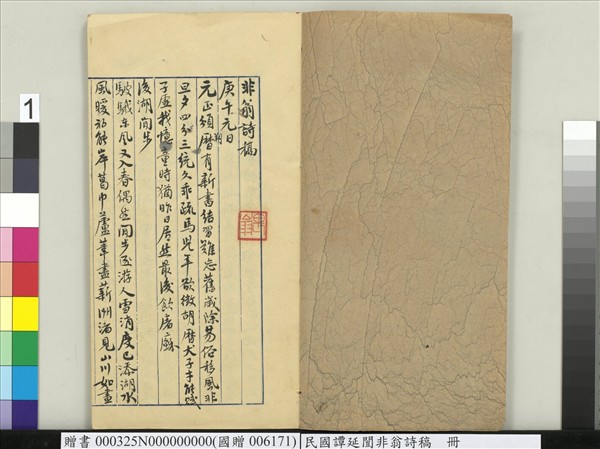 非翁詩稿
庚午元日
元正頒曆有新書結習難忘舊歲除易俗移風非
朔
旦夕四分三統久乖疏馬兒年欲徵胡曆犬子才能賦
子虛我憶童時猶昨日居然最後飲屠蘇
後湖閒步
風又入春偶然閒步游人雪消度已添湖水
風暖初能岸葛巾蘆葦盡薪洲渚見山川如畫
1
贈書 000325N000000000(國贈 006171) 民國譚延闓非翁詩稿 冊